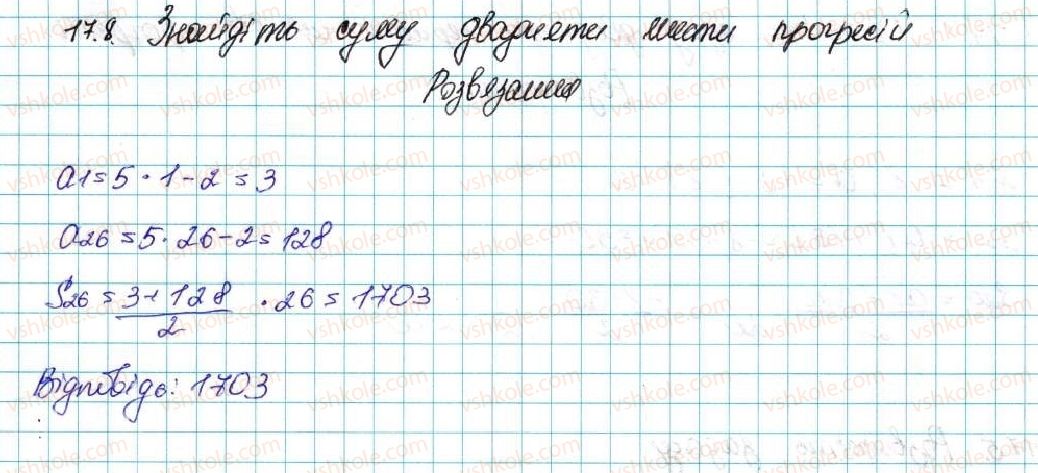 17.8. Знайдіть суму двадцяти шести прогресій
Розвязання
a1 = 5 · 1 - 2 = 3
a26 = 5 · 26 - 2 = 128
S26 = (3 + 128)/2 · 26 = 1703
Відповідь: 1703